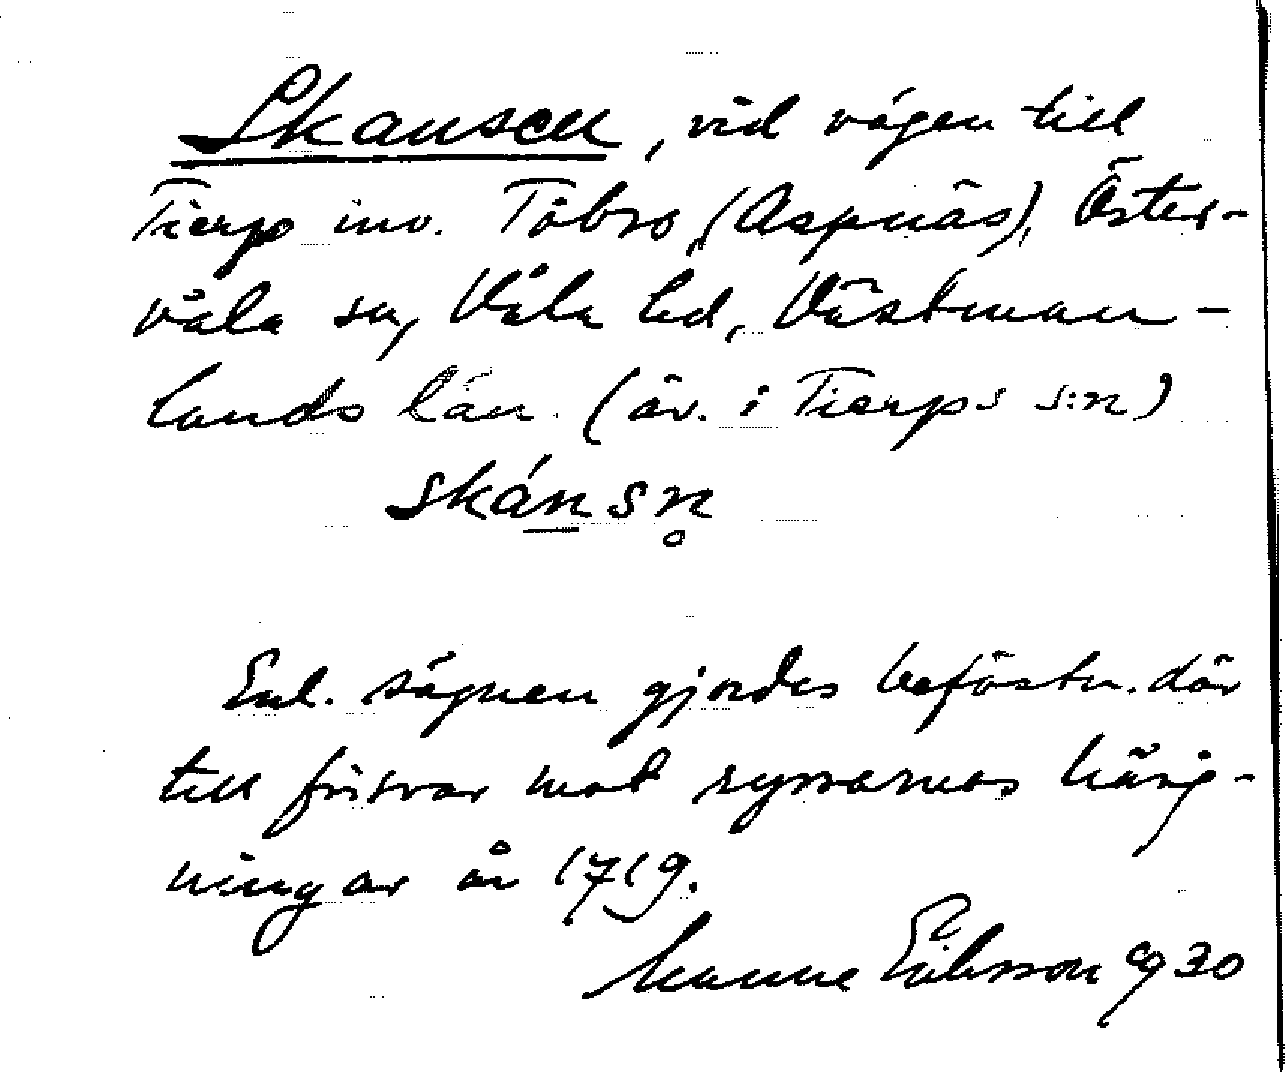 Skansen, vid vägen till
Tierp inv. Tobro, (Aspnäs), Öster-
våla sn, Våla hd, Västman-
lands län. (äv. i Tierps s:n)
skánsn̥
Enl. sägnen gjordes befästn. där
till försvar mot ryssarnas härj-
ningar år 1719.
Manne Eriksson 1930